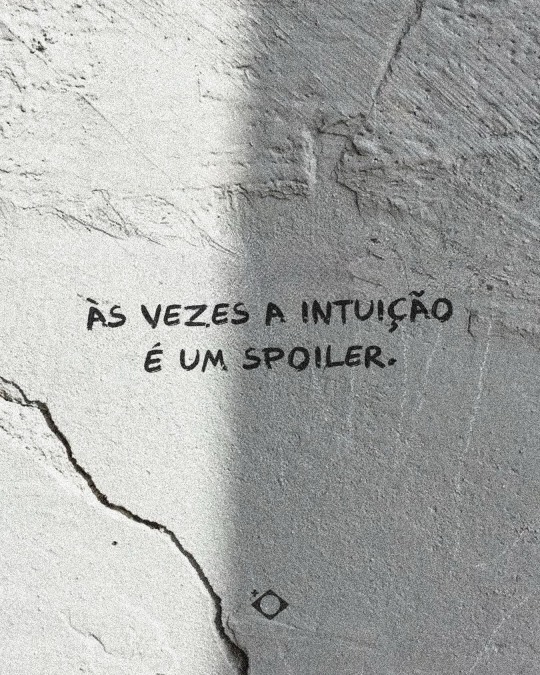 ÀS VEZES A INTUIÇÃO
É UM SPOILER.